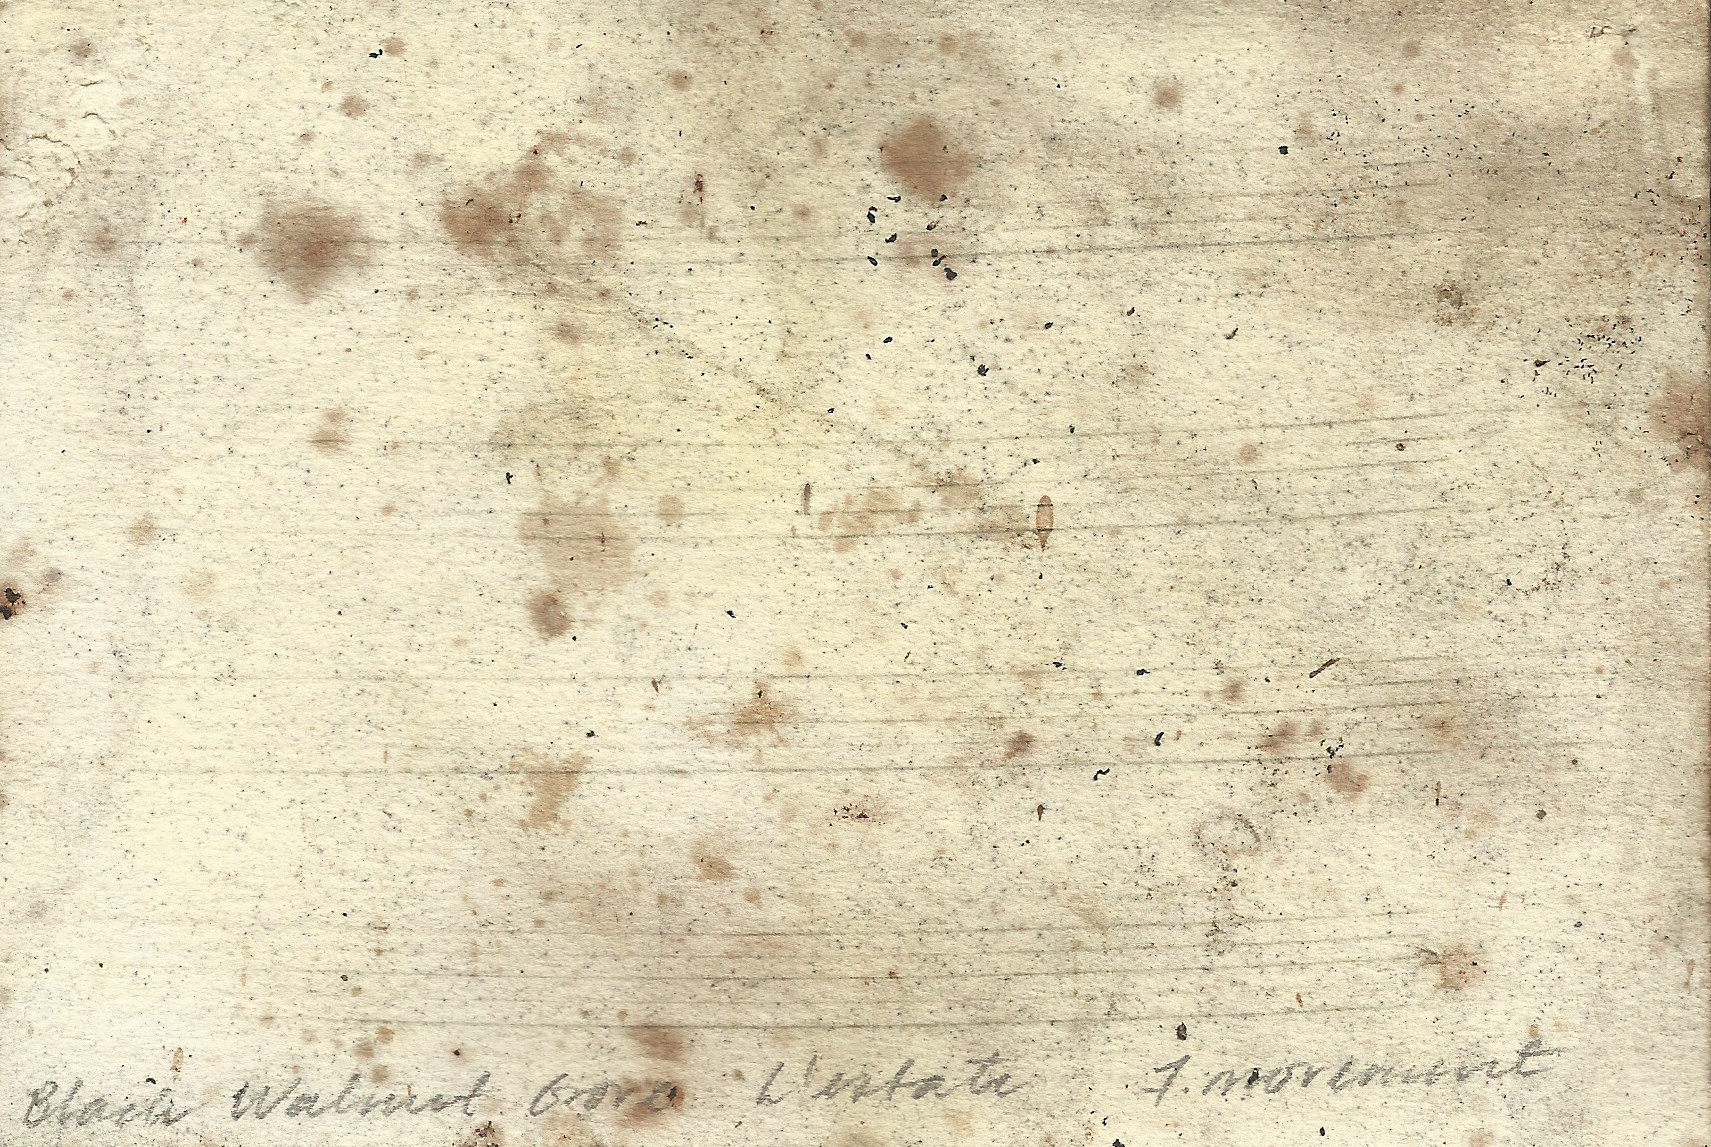 Black Walnut Grove L'estate 1. movement